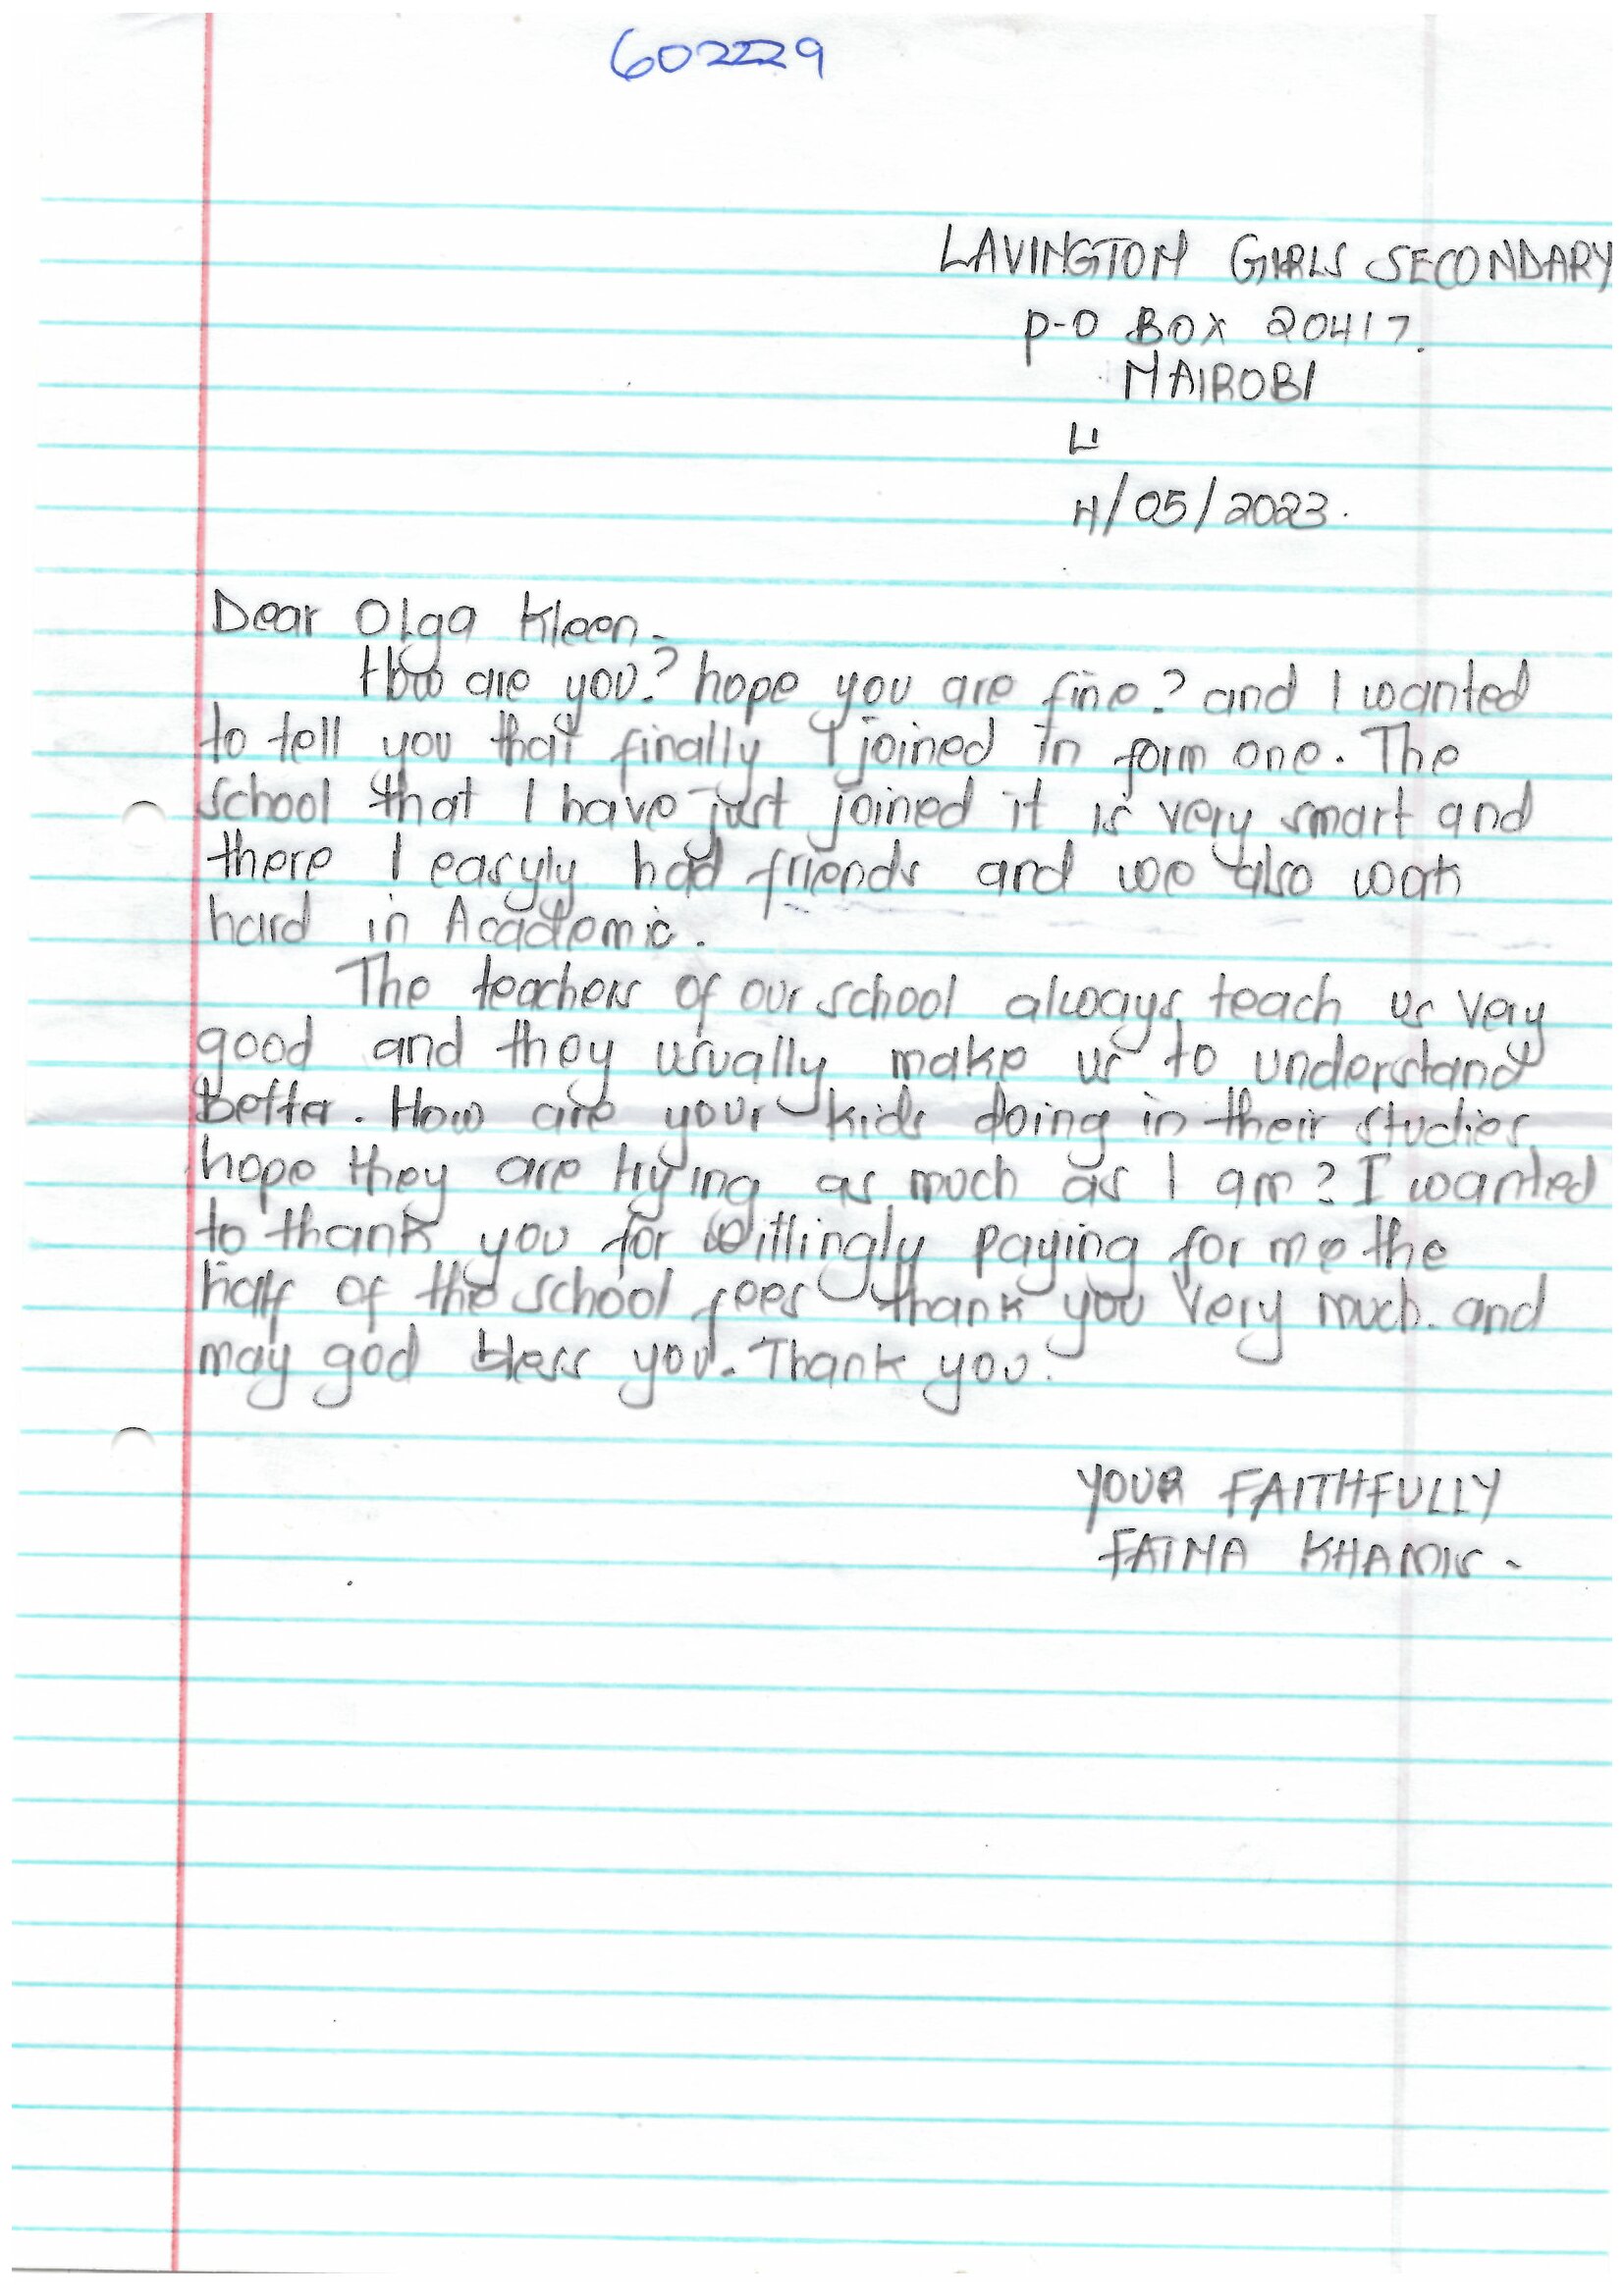 602229
LAVINGTON GIRLS SECONDARY
P-O BOX 20417.
NAIROBI
4/05/2023.
Dear Olga Kleen.
How are you? hope you are fine? and I wanted
to tell you that finally I joined in form one. The
school that I have just joined it is very smart and
there I easyly had friends and we also work
hard in Academic.
The teachers of our school always teach us very
good and they usually make us to understand
Better. How are your kids doing in their studies
hope they are trying as much as I am? I wanted
to thank you for willingly paying for me the
half of the school fees thank you very much. and
may god bless you. Thank you.
YOUR FAITHFULLY
FATMA KHAMIS.